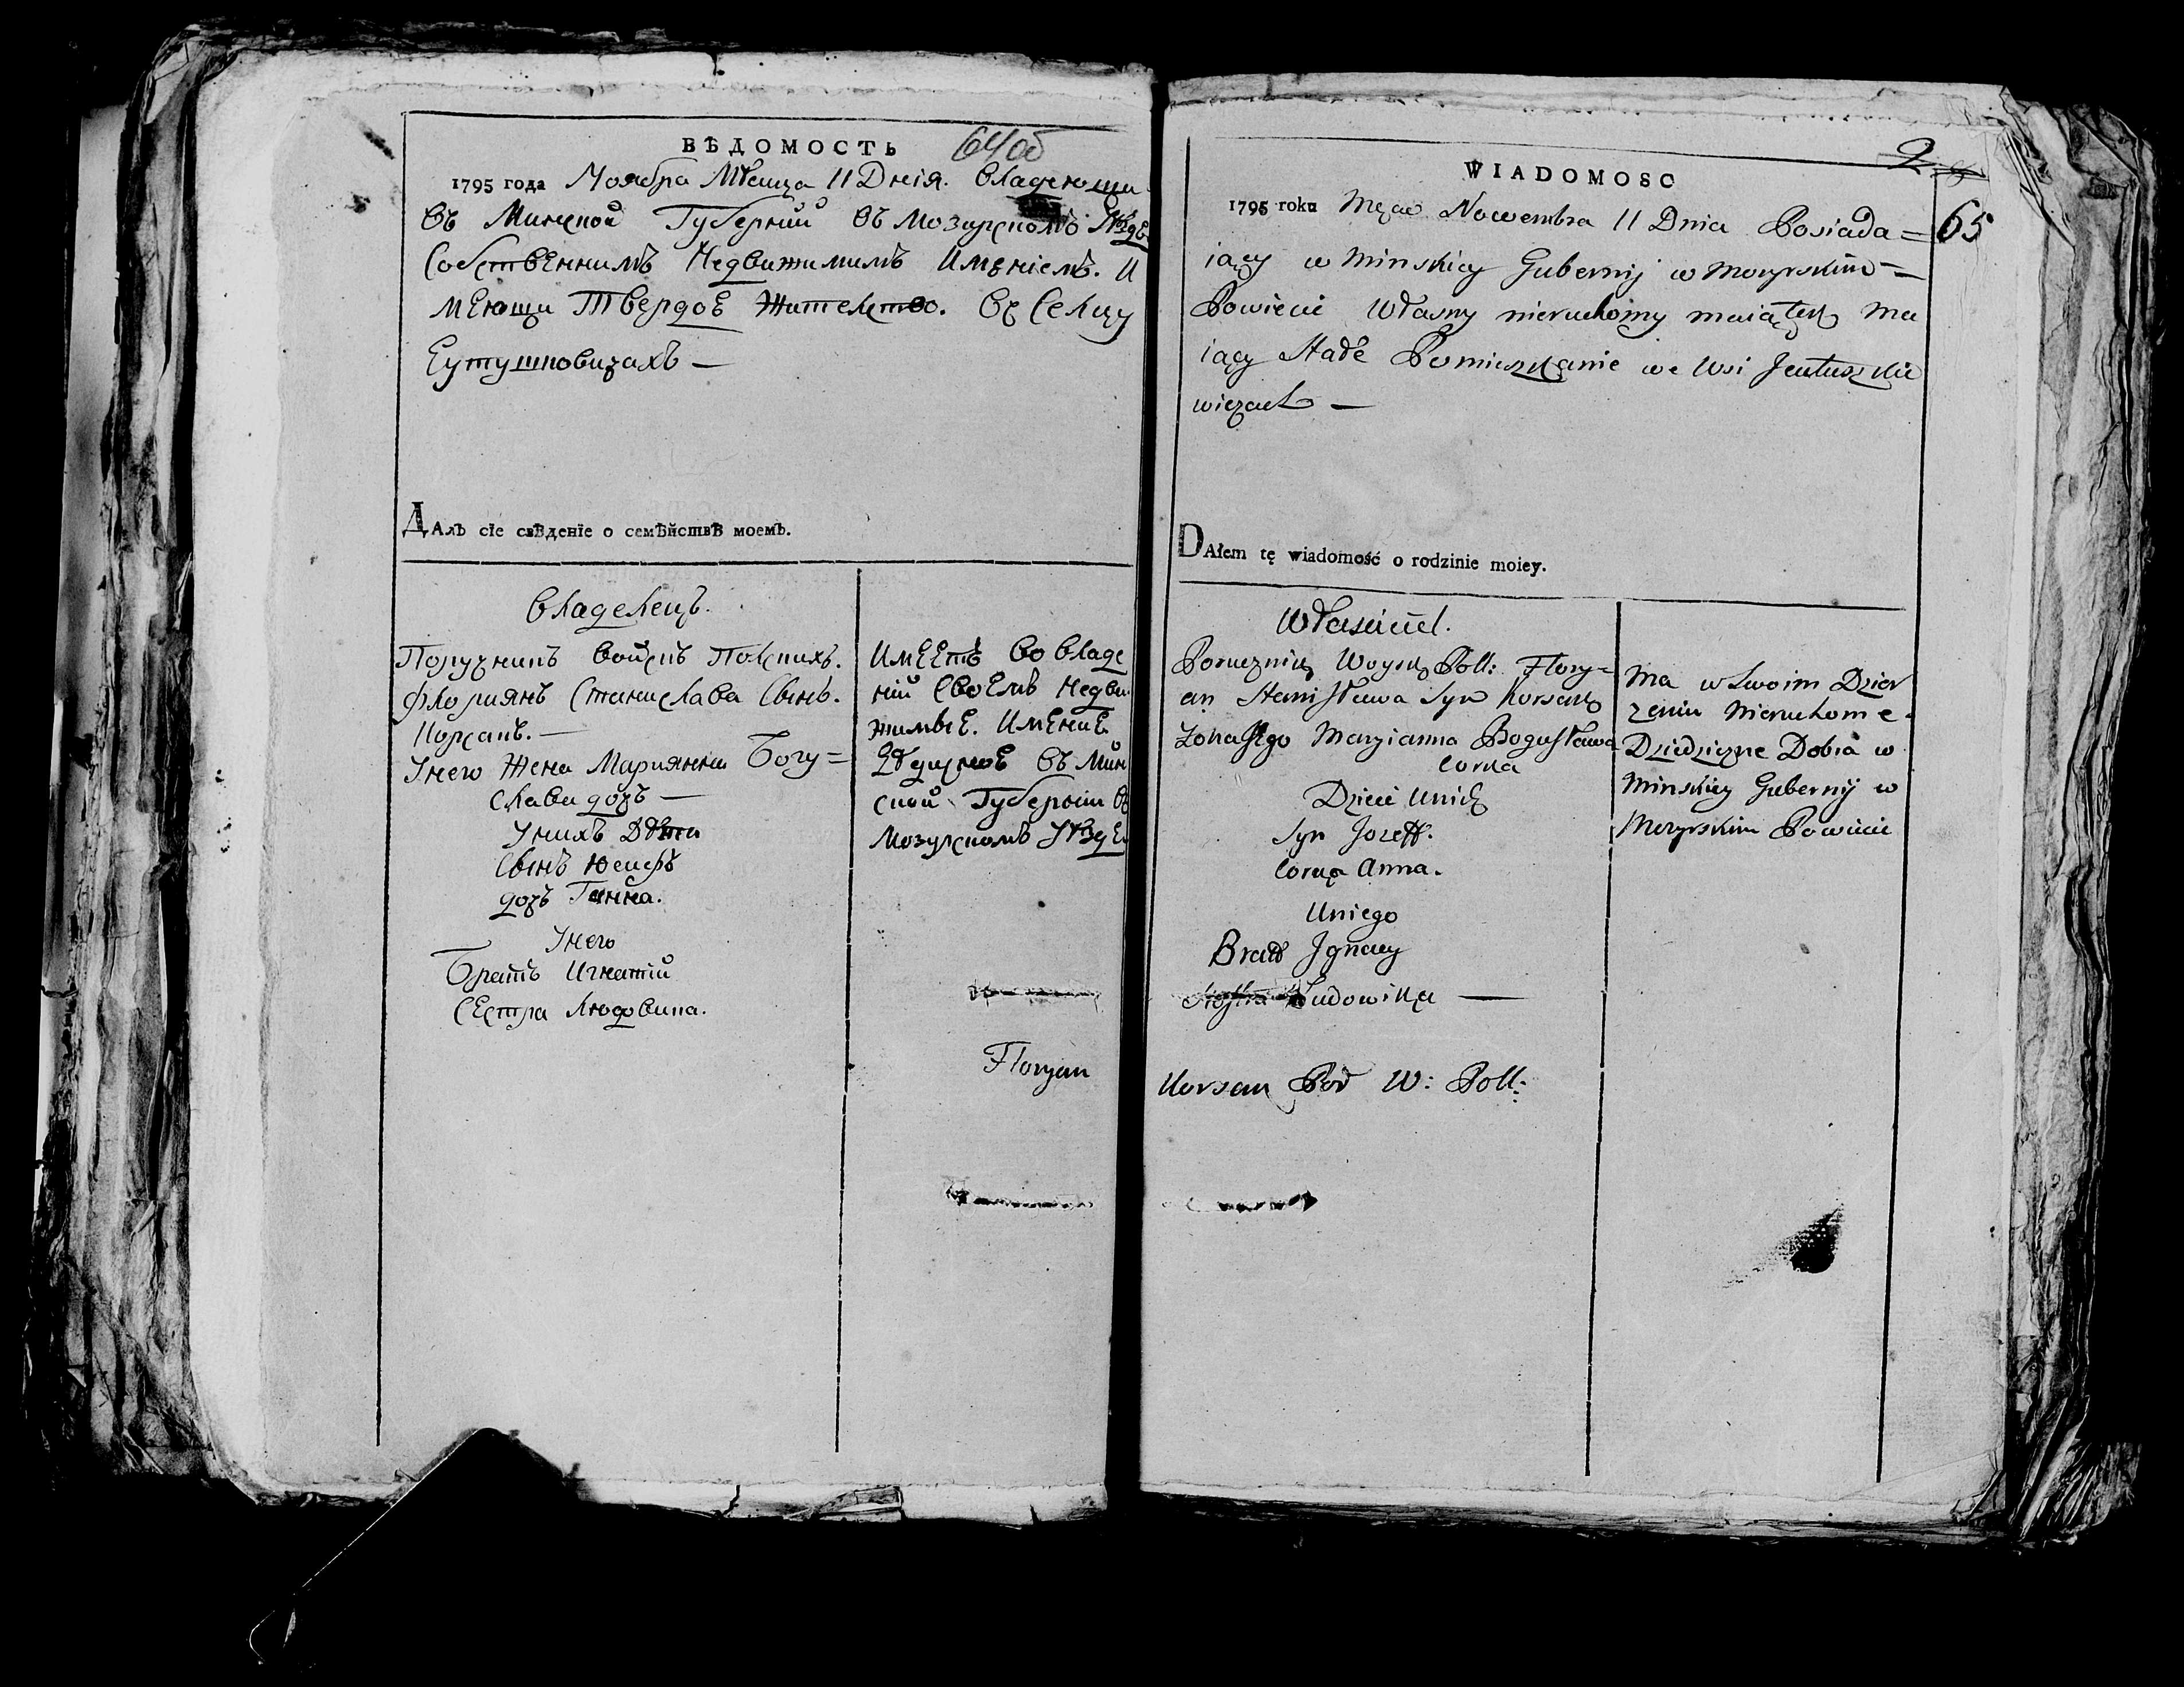 ВѢДОМОСТЬ 64об
1795 года Ноября Мѣсица 11 Днія. Владеющи
въ Минской Губерній въ Мозырскомъ Уѣзде
Собственнимъ Недвижимимъ Имѣніемъ. И
меющи Твердое Жителство. въ Селцу
Еутушковичахъ —
Далъ сїе свѣденїе о семѣйствѣ моемъ.
Владелецъ.
Поручникъ Войскъ Полскихъ.
Флориянъ Станислава Сынъ.
Корсакъ. —
Унего Жена Мариянна Богу=
слава дочъ —
Унихъ Дѣти
Сынъ Юсифъ
дочъ Ганна.
Унего
Братъ Игнатій
Сестра Людовика.
Имеетъ Во Владе
ній Своемъ Недви
жимые. Имение
въ Мин
ской Губерніи въ
Мозырскомъ Уѣзде
Floryan
WIADOMOSC
2
65
1795 roku Mca Nowembra 11 Dnia Posiada=
iący w Minskiey Gubernij w Mozyrskim —
Powiecie Własny nieruchomy maiątek Ma
iący Stałe Pomieszkanie we Wsi Jeutuszko
wiczach —
DAłem tę wiadomość o rodzinie moiey.
Właściciel.
Porucznik Woysk Poll: Flory=
an Stanisława Syn Korsak
Zona Jego Maryianna Bogusława
Corka
Dzieci Unich
Syn Jozeff.
Corka Anna.
Uniego
Bratt Jgnacy
Siostra Ludowika —
Ma w Swoim Dzier
zeniu Nieruchome
Dziedziczne Dobra w
Minskiey Gubernij w
Mozyrskim Powiecie
Korsak Por W: Poll: